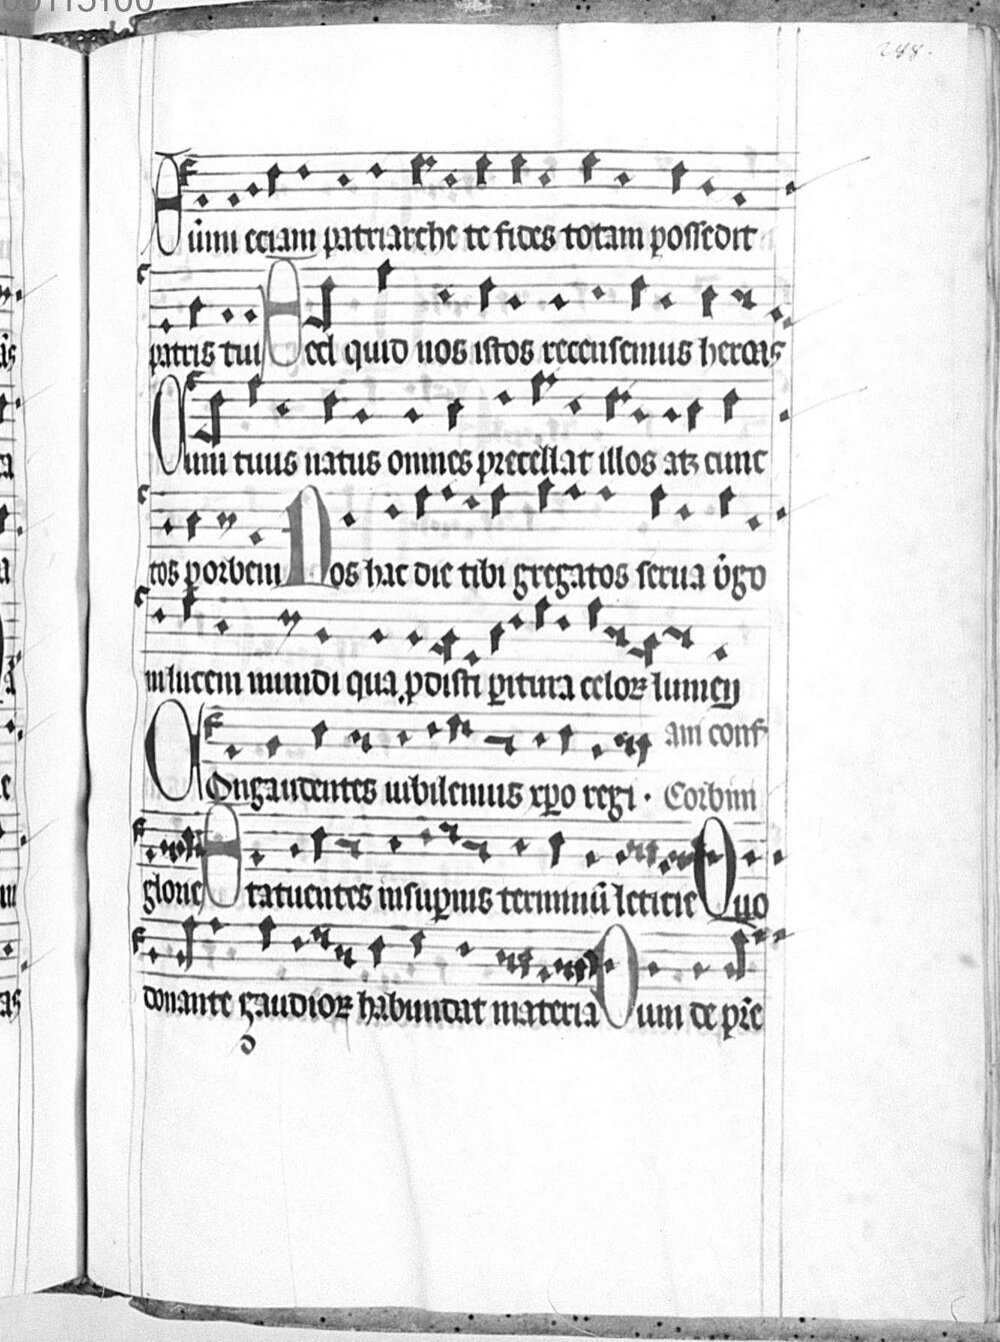 288.
Summi eciam patriarche te fides totam possedit
patris tui Sed quid nos istos recensemus heroas
Cum tuus natus omnes precellat illos atꝫ cunc
tos ꝑ orbem Nos hac die tibi gregatos serua v̓go
in lucem mundi qua ꝓdisti ꝑitura celoꝝ lumen
am conf
Congaudentes iubilemus xp̄o regi · Corbini
glorie Statuentes in suꝑnis terminū leticie Quo
donante gaudioꝝ habundat materia Cum de pr̄e